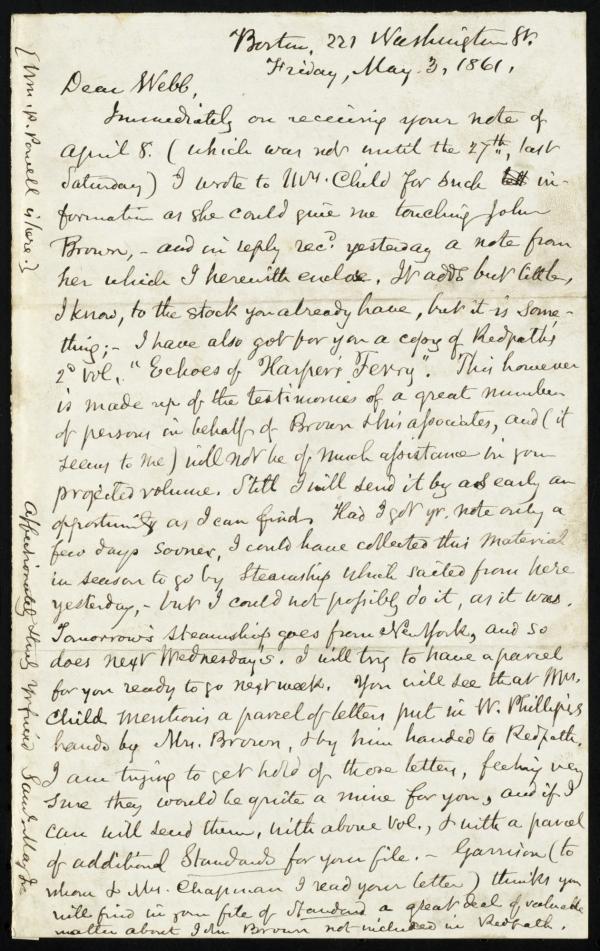 Boston, 221 Washington St.
Friday, May 3, 1861.
Dear Webb,
Immediately on receiving your note of
April 8. (which was not until the 27th, last
Saturday) I wrote to Mrs. Child for such in-
formation as she could give me touching John
Brown, - and in reply recd. yesterday a note from
her which I herewith enclose. It adds but little,
I know, to the stock you already have, but it is some-
thing; - I have also got for you a copy of Redpath's
2d vol., "Echoes of Harper's Ferry". This however
is made up of the testimonies of a great number
of persons in behalf of Brown & his associates, and (it
seems to me) will not be of much assistance in your
projected volume. Still I will send it by as early an
opportunity as I can find. Had I got yr. note only a
few days sooner, I could have collected this material
in season to go by Steamship which sailed from here
yesterday, - but I could not possibly do it, as it was.
Tomorrow's steamship goes from New York, and so
does next Wednesday's. I will try to have a parcel
for you ready to go next week. You will see that Mrs.
Child mentions a parcel of letters put in W. Phillips's
hands by Mrs. Brown, & by him handed to Redpath.
I am trying to get hold of those letters, feeling very
sure they would be quite a mine for you, and if I
can will send them, with above vol., & with a parcel
of additional Standards for your file. - Garrison (to
whom & Mrs. Chapman I read your letter) thinks you
will find in your file of Standard a great deal of valuable
matter about John Brown not included in Redpath.
Affectionately thine Yr friend Saml. May Jr.
[Wm. P. Powell is here.]